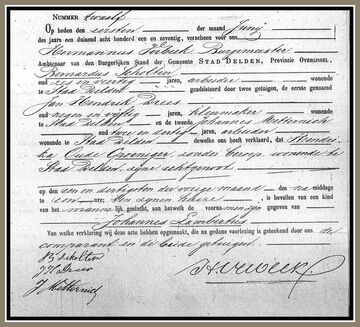 NUMMER twaalf
Op heden den eersten der maand Junij
des jaars een duizend acht honderd een en zeventig, verscheen voor ons
Hermannus Verbeek Burgemeester
Ambtenaar van den Burgerlijken Stand der Gemeente STAD DELDEN, Provincie OVERIJSSEL,
Bernardus Scholten oud
zes en veertig jaren, arbeider wonende
te Stad Delden geadsisteerd door twee getuigen, de eerste genaamd
Jan Hendrik Drees
oud negen en vijftig jaren, klompmaker wonende
te Stad Delden en de tweede Johannes Metternich
oud twee en dertig jaren, arbeider
wonende te Stad Delden dewelke ons heeft verklaard, dat
Oude zonder beroep wonende te
Stad Delden, zijne echtgenoot
op den een en dertigsten der vorige maand des na-middags
te een ure, ten zijnen huize is bevallen van een kind
van het mannelijk geslacht, aan hetwelk de voornamen zijn gegeven van
Johannes Lambertus
Van welke verklaring wij deze acte hebben opgemaakt, die na gedane voorlezing is geteekend door ons
comparant en de beide getuigen.
B Scholten
J H Drees
J Metternich
H Verbeek